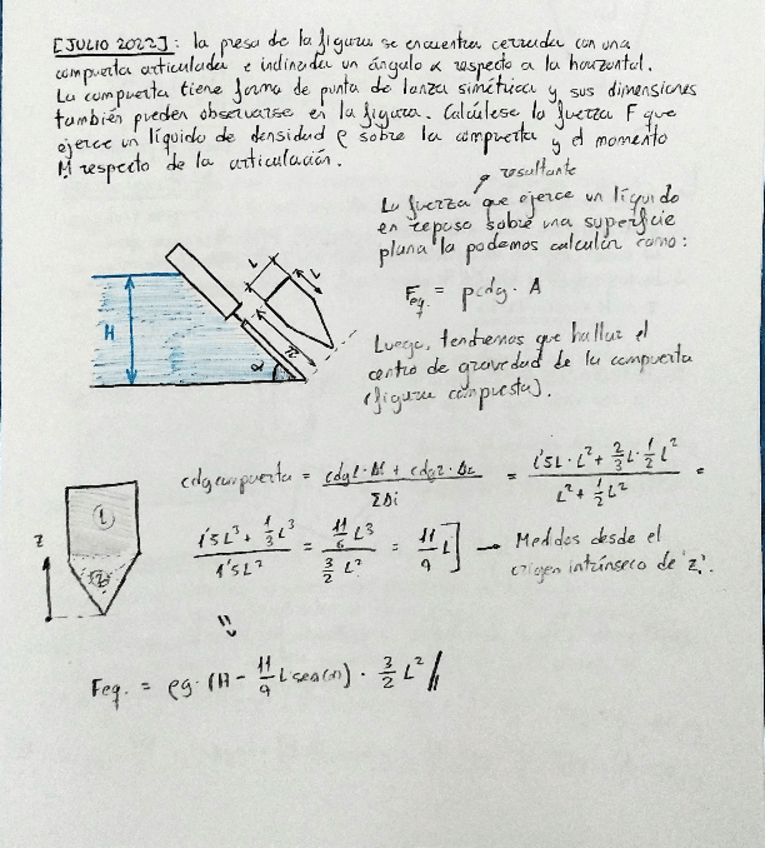 [JULIO 2022]: la presa de la figura se encuentra cerrada con una
compuerta articulada e inclinada un ángulo α respecto a la horizontal.
La compuerta tiene forma de punta de lanza simétrica y sus dimensiones
también pueden observarse en la figura. Calcúlese la fuerza F que
ejerce un líquido de densidad ρ sobre la compuerta y el momento
M respecto de la articulación.
resultante
La fuerza que ejerce un líquido
en reposo sobre una superficie
plana la podemos calcular como:
L L
H
α
Feq. = pcdg · A
Luego, tendremos que hallar el
centro de gravedad de la compuerta
(figura compuesta).
cdgcompuerta = cdg1·A1 + cdg2·A2 / ΣAi = 1'5L·L² + 2/3 L·1/2 L² / L² + 1/2 L² =
1'5L³ + 1/3 L³ / 1'5L² = 11/6 L³ / 3/2 L² = 11/9 L] → Medidos desde el
origen intrínseco de "z".
z
1
2
Feq. = ρg·(H - 11/9 L sen(α)) · 3/2 L² //